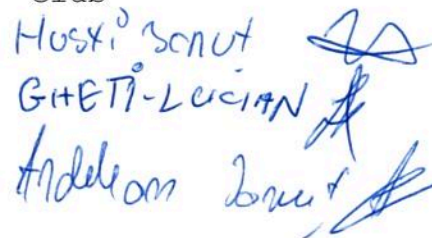 Husti Ionut
GHETI-LUCIAN
Ardelean Ionut